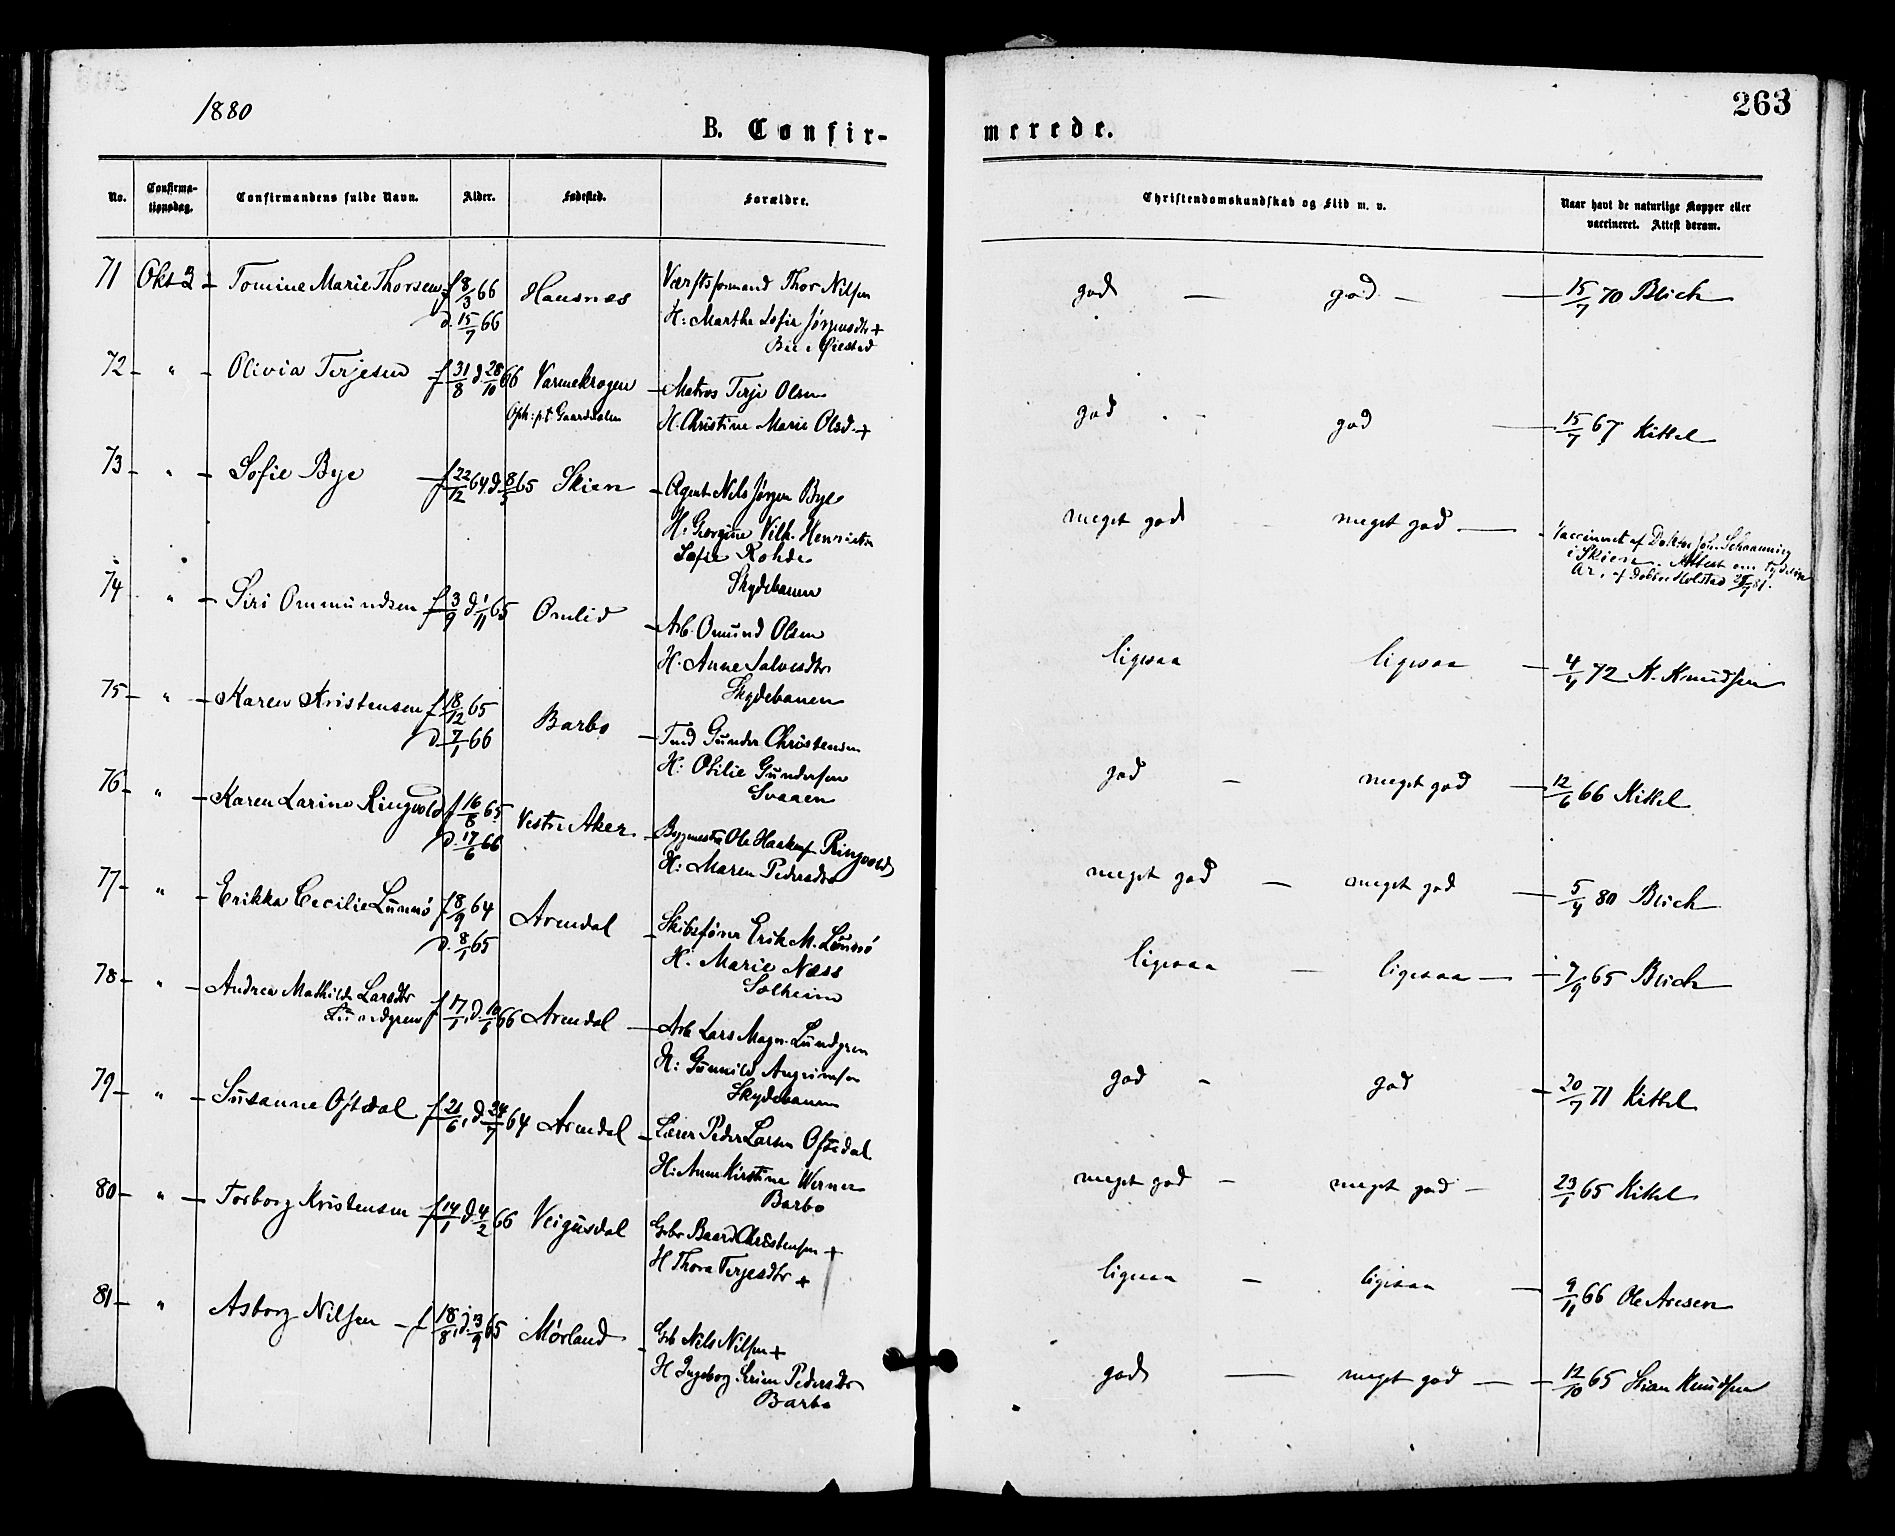 1880
263
B. Confir-
merede.
No.
Confirma-
tionsdag.
Confirmandens fulde Navn.
Alder.
Fødested.
Forældre.
Christendomskundskab og Flid m. v.
Naar havt de naturlige Kopper eller
vaccineret. Attest derom.
71 Okt 3 - Tomine Marie Thorsen f 8/3 66 Hausnes Værftsformand Thor Nilsen god - god - 15/7 70 Blich
d. 15/7 66 H: Marthe Sofie Jørgensdtr +
72 - " - Olivia Terjesen f 31/8 d 28/10 66 Varmekrogen - Matros Terje Olsen god - god 15/7 67 Kittel
Oph: p.t. Gaardsalen H. Christine Marie Olsd. +
73 - " - Sofie Bye f 22/12 64 d 8/3 65 Skien - Agent Nils Jørgen Bye meget god - meget god - Vaccineret af Doktor Joh. Schanning
H: Georgine Vilh. Henriette i Skien. Attest om tydelige
Sofie Rohde Ar. af Doktor Holstad
Skydebanen
74 " - Siri Ommundsen f 3/9 d 1/11 65 Omlid - Arb. Omund Olsen ligesaa ligesaa - 4/4 72 K. Knudsen
H. Anne Salvesdtr
Skydebanen
75 - " - Karen Kristensen f 18/12 65 Barbo - Tmd Gunder Christensen god - meget god - 12/6 66 Kittel
d. 7/1 66 H: Otilie Gundersen
Svaaen
76 - " - Karen Larine Ringvold f 16/8 65 Vestre Aker - Bygmester Ole Haakens Ringvold meget god - meget god - 5/4 80 Blich
d. 17/6 66 H: Maren Pedersdtr
77 - " - Erikka Cecilie Lunnø f 8/9 64 Arendal - Skibsfører Erik M. Lunnø ligesaa - ligesaa - 7/9 65 Blich
d. 8/1 65 H. Marie Næss
Solheim
78 - " - Andrea Mathilde Larsdtr
Lundgren f 17/1 d. 10/6 66 Arendal - Arb Lars Magn. Lundgren god - god - 20/7 71 Kittel
H: Gunnild
Skydebanen
79 - " - Susanne Oftedal f 21/6 d 24/7 64 Arendal - Lærer Peder Larsen Oftedal meget god - meget god - 23/1 65 Kittel
H: Anne Kirstine Werner
Barbo
80 - " - Torborg Kristensen f 14/1 d 4/2 66 Veigusdal Gbr Baard Christensen + ligesaa - ligesaa - 9/11 66 Ole Aresen
H Thora Terjesdtr +
81 - " Asborg Nilsen - f 18/8 d. 3/9 65 Mørland - Gbr Nils Nilsen + god - meget god - 12/10 65 Stian Knudsen
H Ingeborg Serine Pedersdtr
Barbo